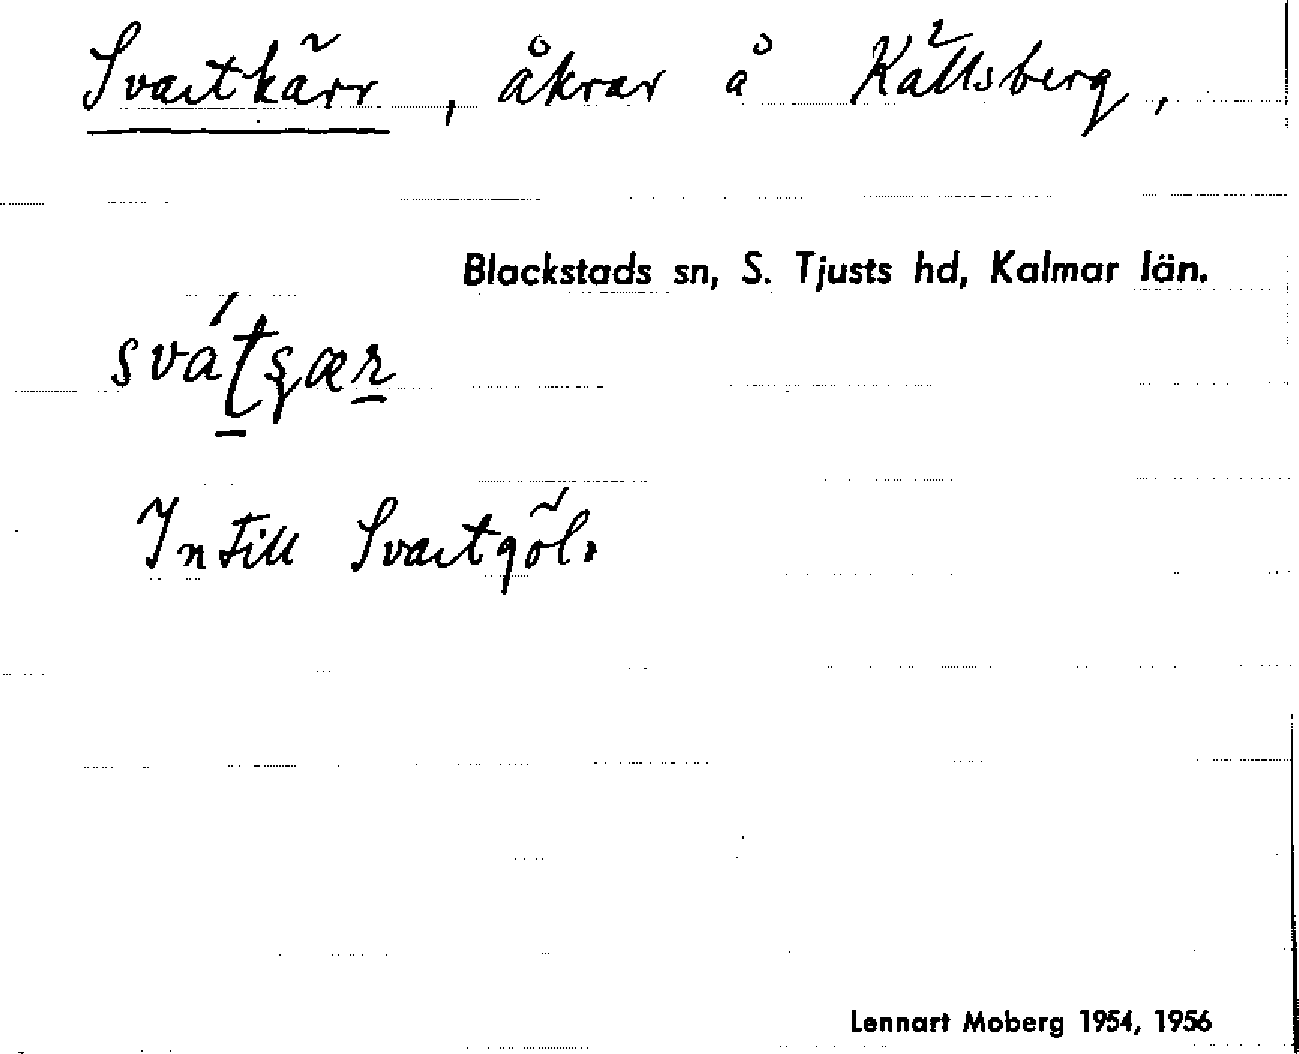 Svartkärr, åkrar å Källsberg,
Blackstads sn, S. Tjusts hd, Kalmar län.
Intill Svartgöl.
Lennart Moberg 1954, 1956